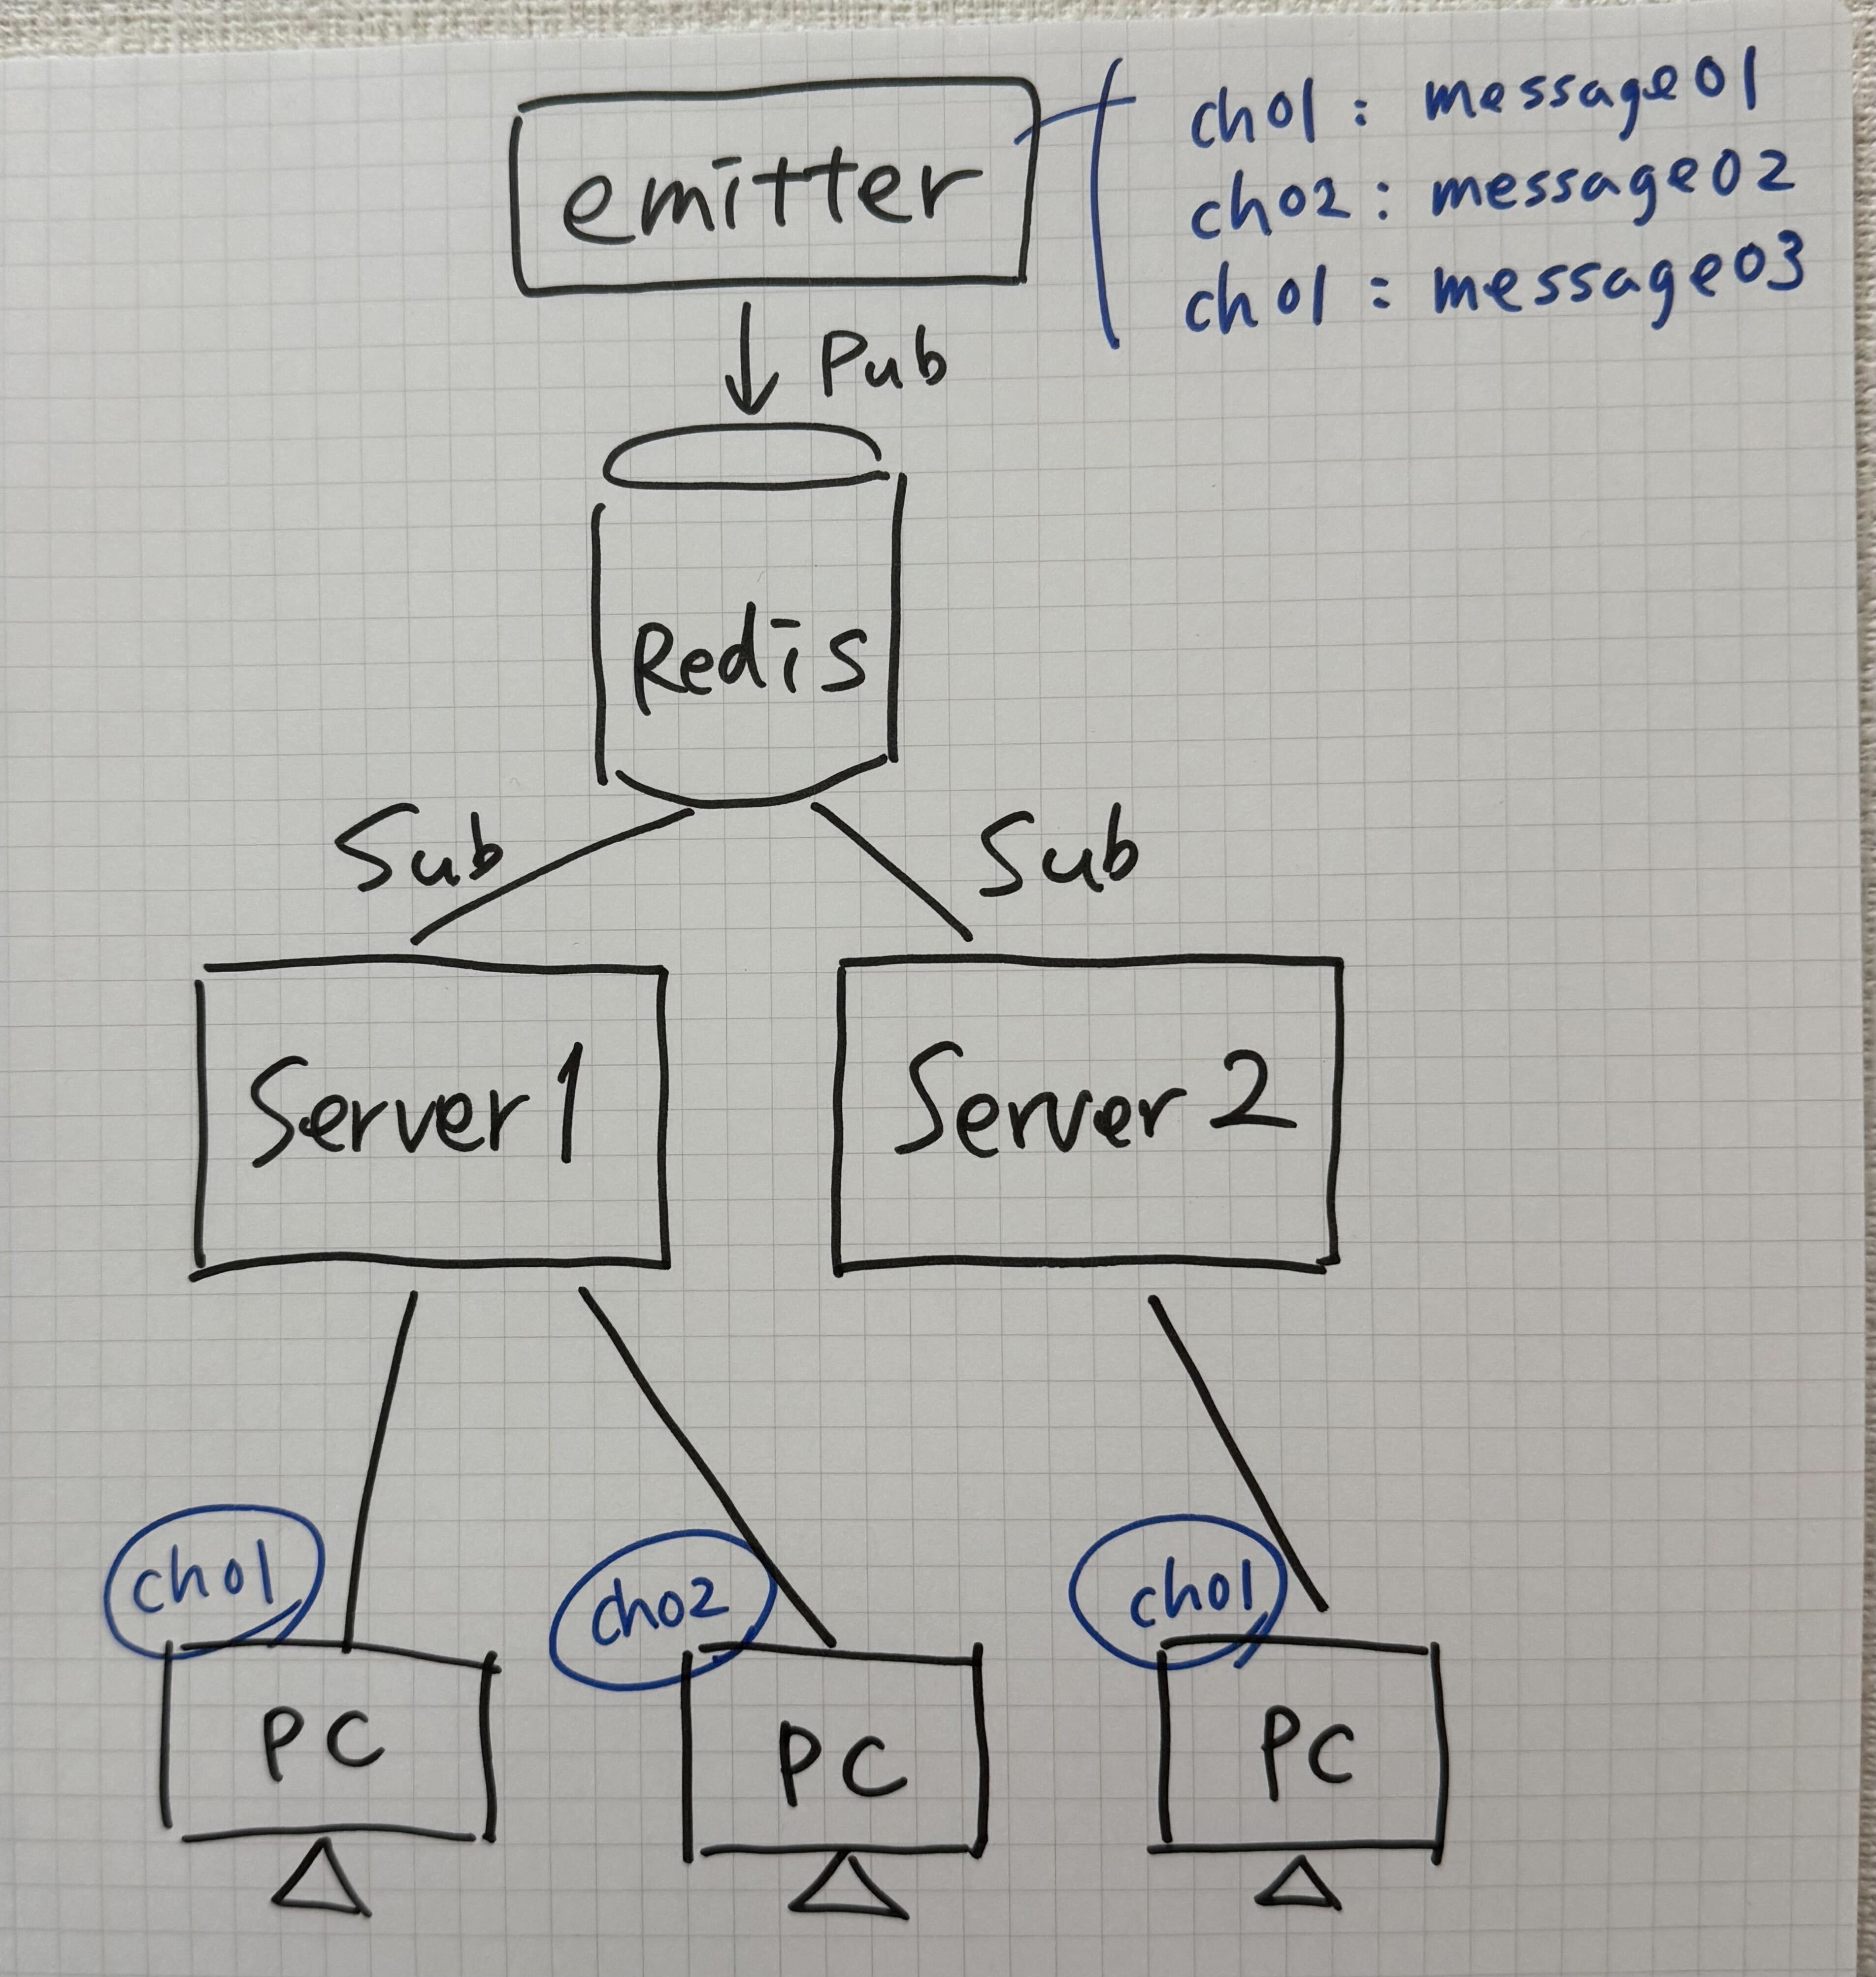 emitter
ch01 : message01
ch02 : message02
ch01 : message03
Pub
Redis
Sub
Sub
Server 1
Server 2
ch01
ch02
ch01
PC
PC
PC